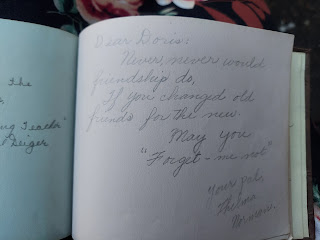 The
ing Teacher"
Deiger
Dear Doris:
Never, never would
friendship do,
If you changed old
friends for the new.
May you
"Forget-me not"
Your pal,
Thelma